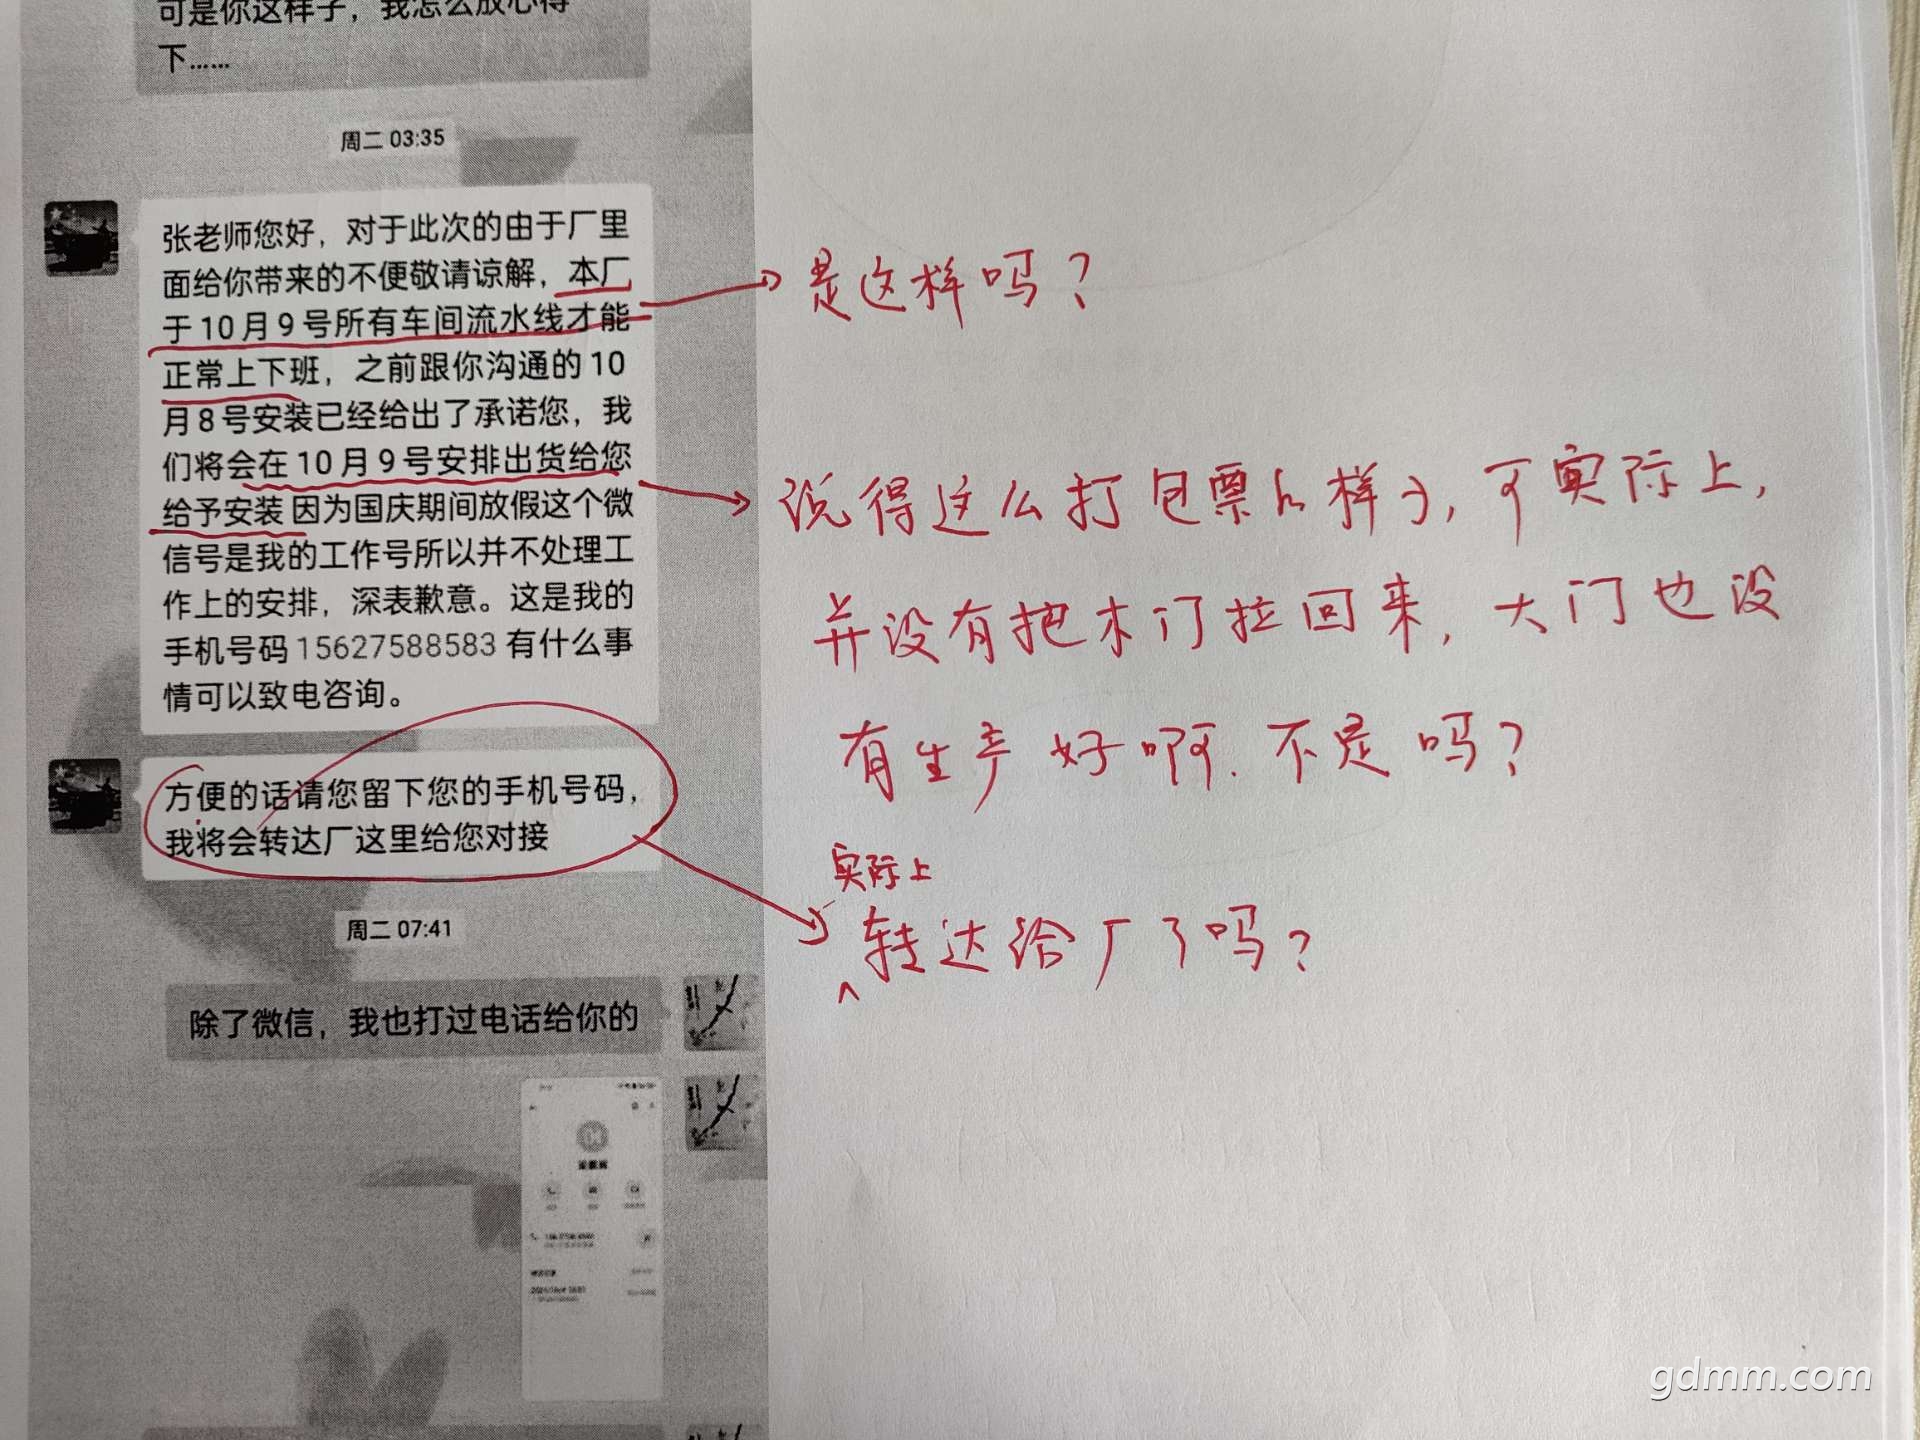 可是你这样子，我怎么放心得
下……
周二 03:35
张老师您好，对于此次的由于厂里
面给你带来的不便敬请谅解，本厂
于10月9号所有车间流水线才能
正常上下班，之前跟你沟通的10
月8号安装已经给出了承诺您，我
们将会在10月9号安排出货给您
给予安装 因为国庆期间放假这个微
信号是我的工作号所以并不处理工
作上的安排，深表歉意。这是我的
手机号码15627588583有什么事
情可以致电咨询。
是这样吗？
说得这么打包票的样子，可实际上，
并没有把木门拉回来，大门也没
有生产好啊.不是吗？
方便的话请您留下您的手机号码，
我将会转达厂这里给您对接
实际上
转达给厂了吗？
周二 07:41
除了微信，我也打过电话给你的
gdmm.com